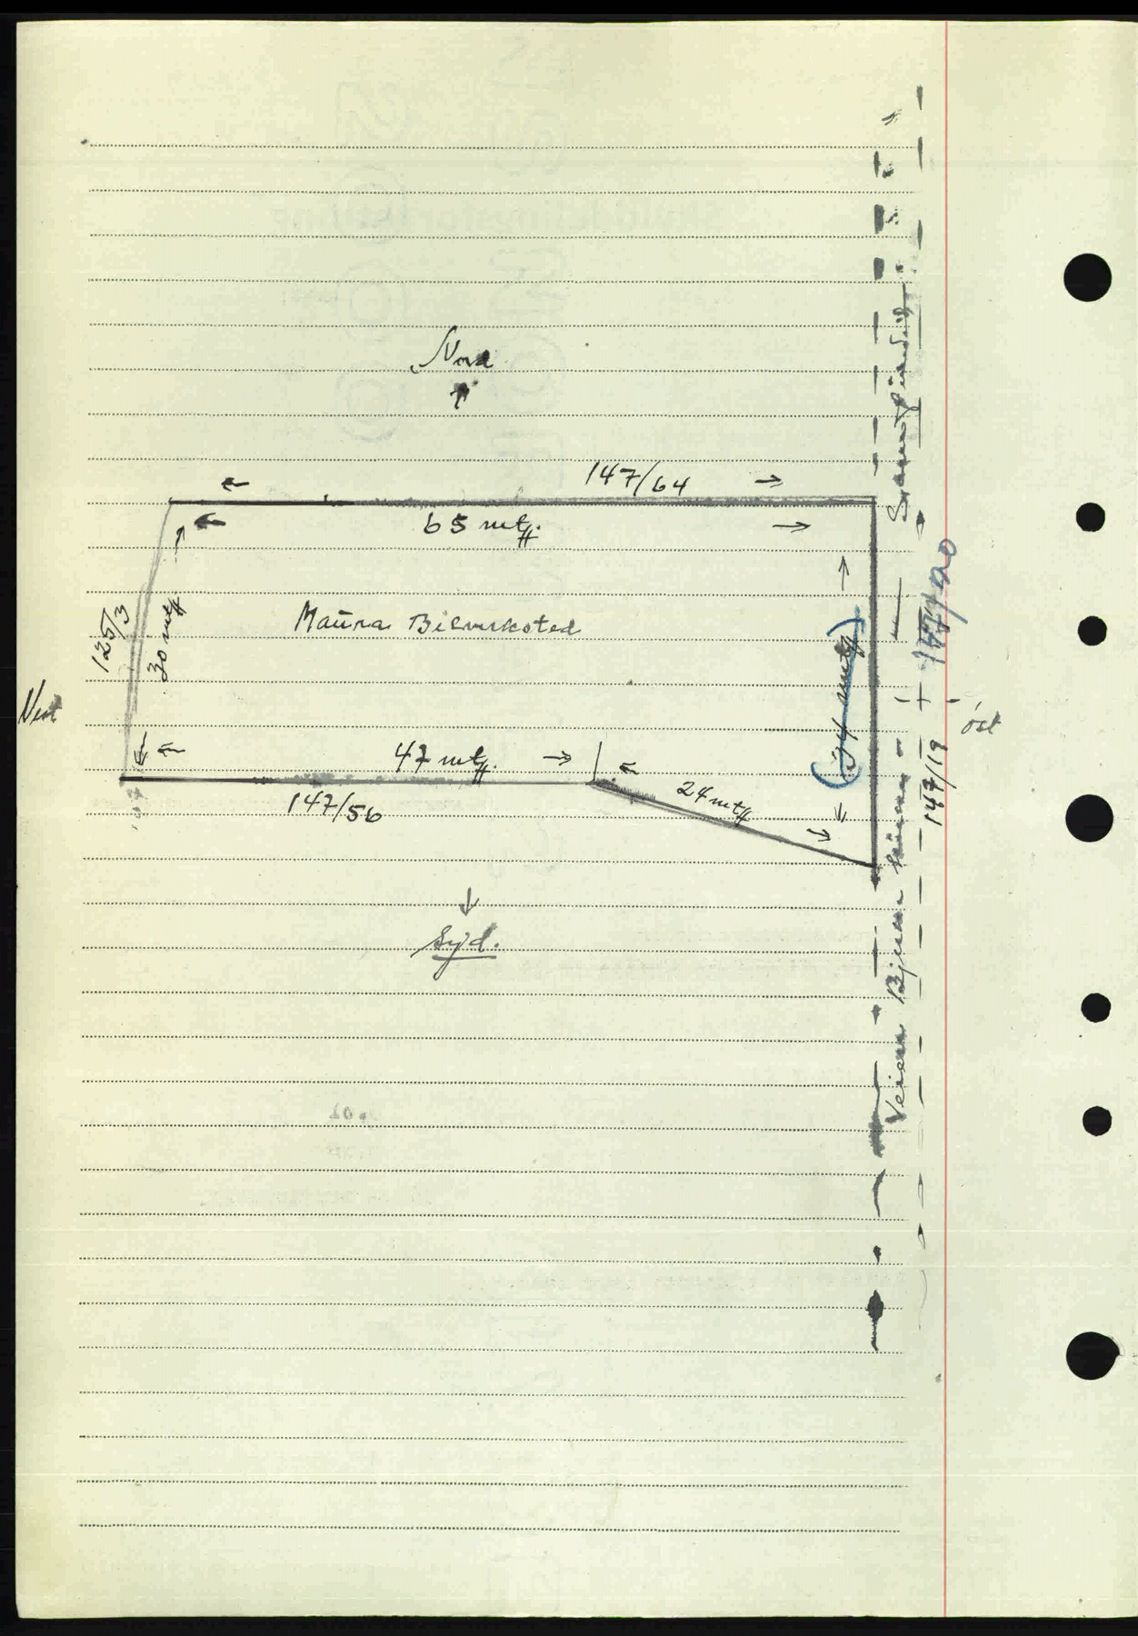 Nord
147/64
65 mtr.
125/3
30 mtr
Maura Bilverksted
(34 mtr)
147/20
Vest
øst
47 mtr.
24 mtr
147/56
147/19
Syd.
Veien